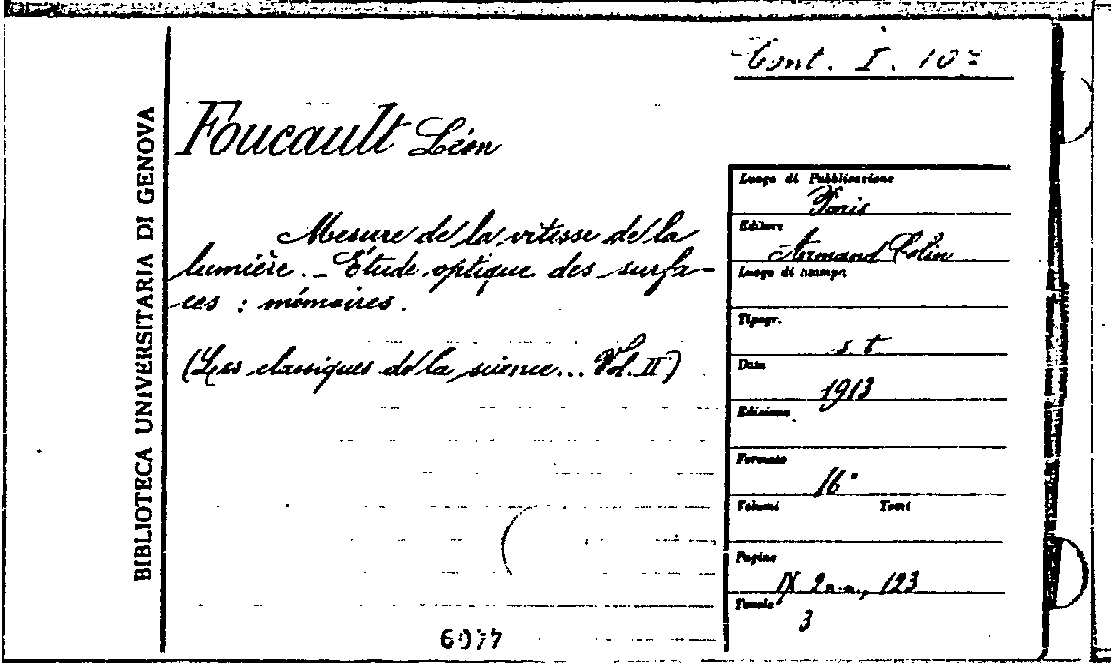 Cont. I. 107
BIBLIOTECA UNIVERSITARIA DI GENOVA
Foucault Léon
Mesure de la vitesse de la
lumière. _ Étude optique des surfa-
ces : mémoires.
(Les classiques de la science... Vol. II)
Luogo di Pubblicazione
Paris
Editore
Armand Colin
Luogo di stampa
Tipogr.
s. t.
Data
1913
Edizione
Formato
16°
Volumi Tomi
Pagine
IX 2 n.n., 123
Tavole
3
6077